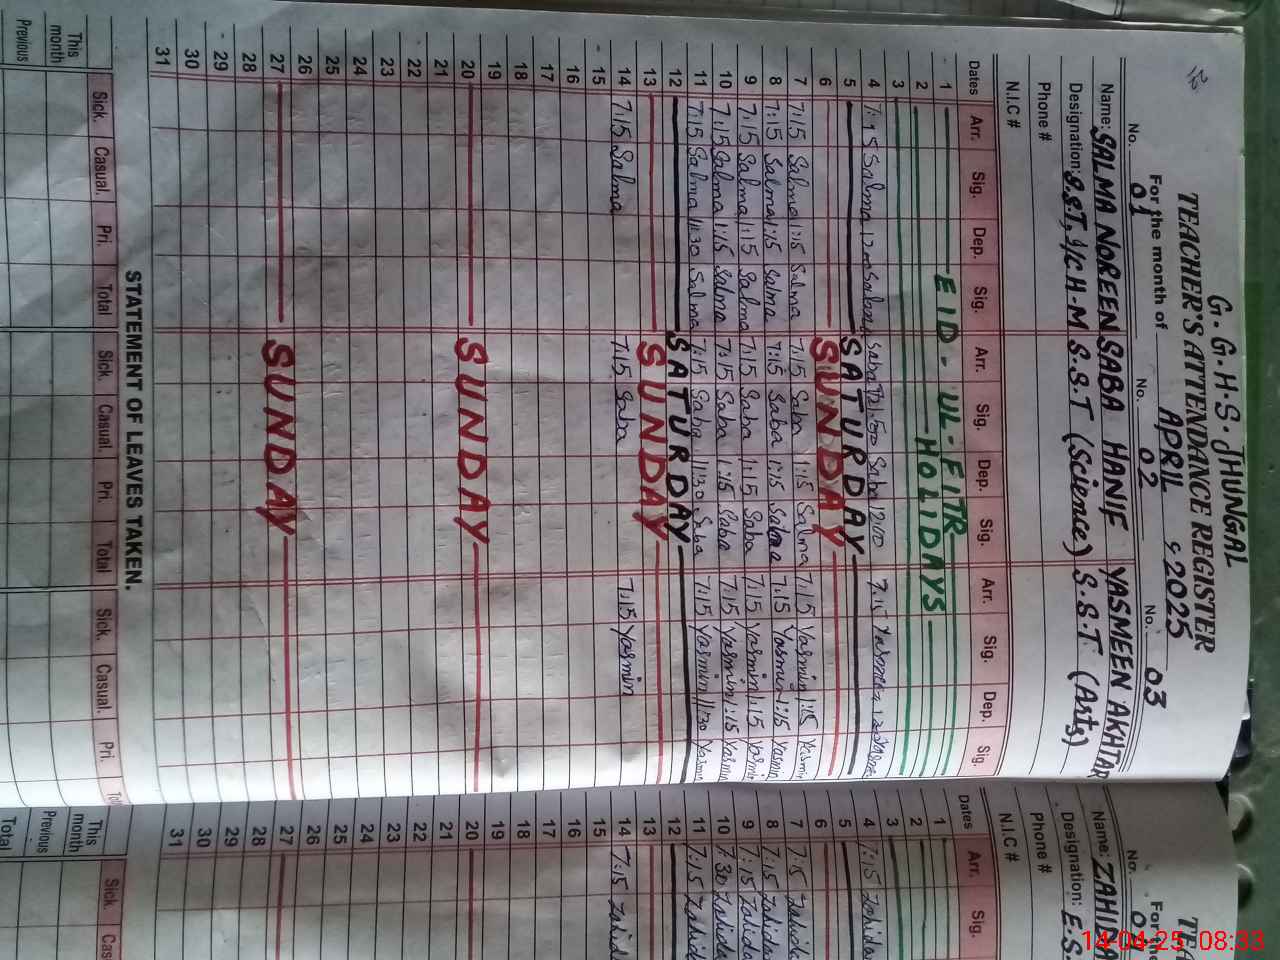 G.G.H.S. JHUNGAL
TEACHER'S ATTENDANCE REGISTER
For the month of APRIL 2025
No. 01 No. 02 No. 03
Name: SALMA NOREEN SABA HANIF YASMEEN AKHTAR
Designation: S.S.T, I/C H-M S.S.T (Science) S.S.T (Arts)
Phone #
N.I.C #
Dates Arr. Sig. Dep. Sig. Arr. Sig. Dep. Sig. Arr. Sig. Dep. Sig.
1 EID-UL-FITR
2 HOLIDAYS
3
4 Salma Saba 12:00 7:15
5 SATURDAY
6 SUNDAY
7 7:15 Salma 1:15 Salma 7:15 Saba 1:15 Salma 7:15 Yasmin 1:15 Yasmin
8 7:15 Salma 1:15 Salma 7:15 Saba 1:15 Saba 7:15 Yasmin 1:15 Yasmin
9 7:15 Salma 1:15 Salma 7:15 Saba 1:15 Saba 7:15 Yasmin 1:15 Yasmin
10 7:15 Salma 1:15 Salma 7:15 Saba 1:15 Saba 7:15 Yasmin 1:15 Yasmin
11 7:15 Salma 11:30 Salma 7:15 Saba 11:30 Saba 7:15 Yasmin 11:30 Yasmin
12 SATURDAY
13 SUNDAY
14 7:15 Salma 7:15 Saba 7:15 Yasmin
15
16
17
18
19
20 SUNDAY
21
22
23
24
25
26
27 SUNDAY
28
29
30
31
STATEMENT OF LEAVES TAKEN.
Sick. Casual. Pri. Total Sick. Casual. Pri. Total Sick. Casual. Pri.
This month
Previous
No.
For the
Name: ZAHIDA
Designation: E.S.
Phone #
N.I.C #
Dates Arr. Sig.
1
2
3
4 7:15 Zahida
5
6
7 7:15 Zahida
8 7:15 Zahida
9 7:15 Zahida
10 7:30 Zahida
11 7:15 Zahida
12
13
14 7:15 Zahid
15
16
17
18
19
20
21
22
23
24
25
26
27
28
29
30
31
Sick. Cas
This month
Previous
Total
14-04-25 08:33